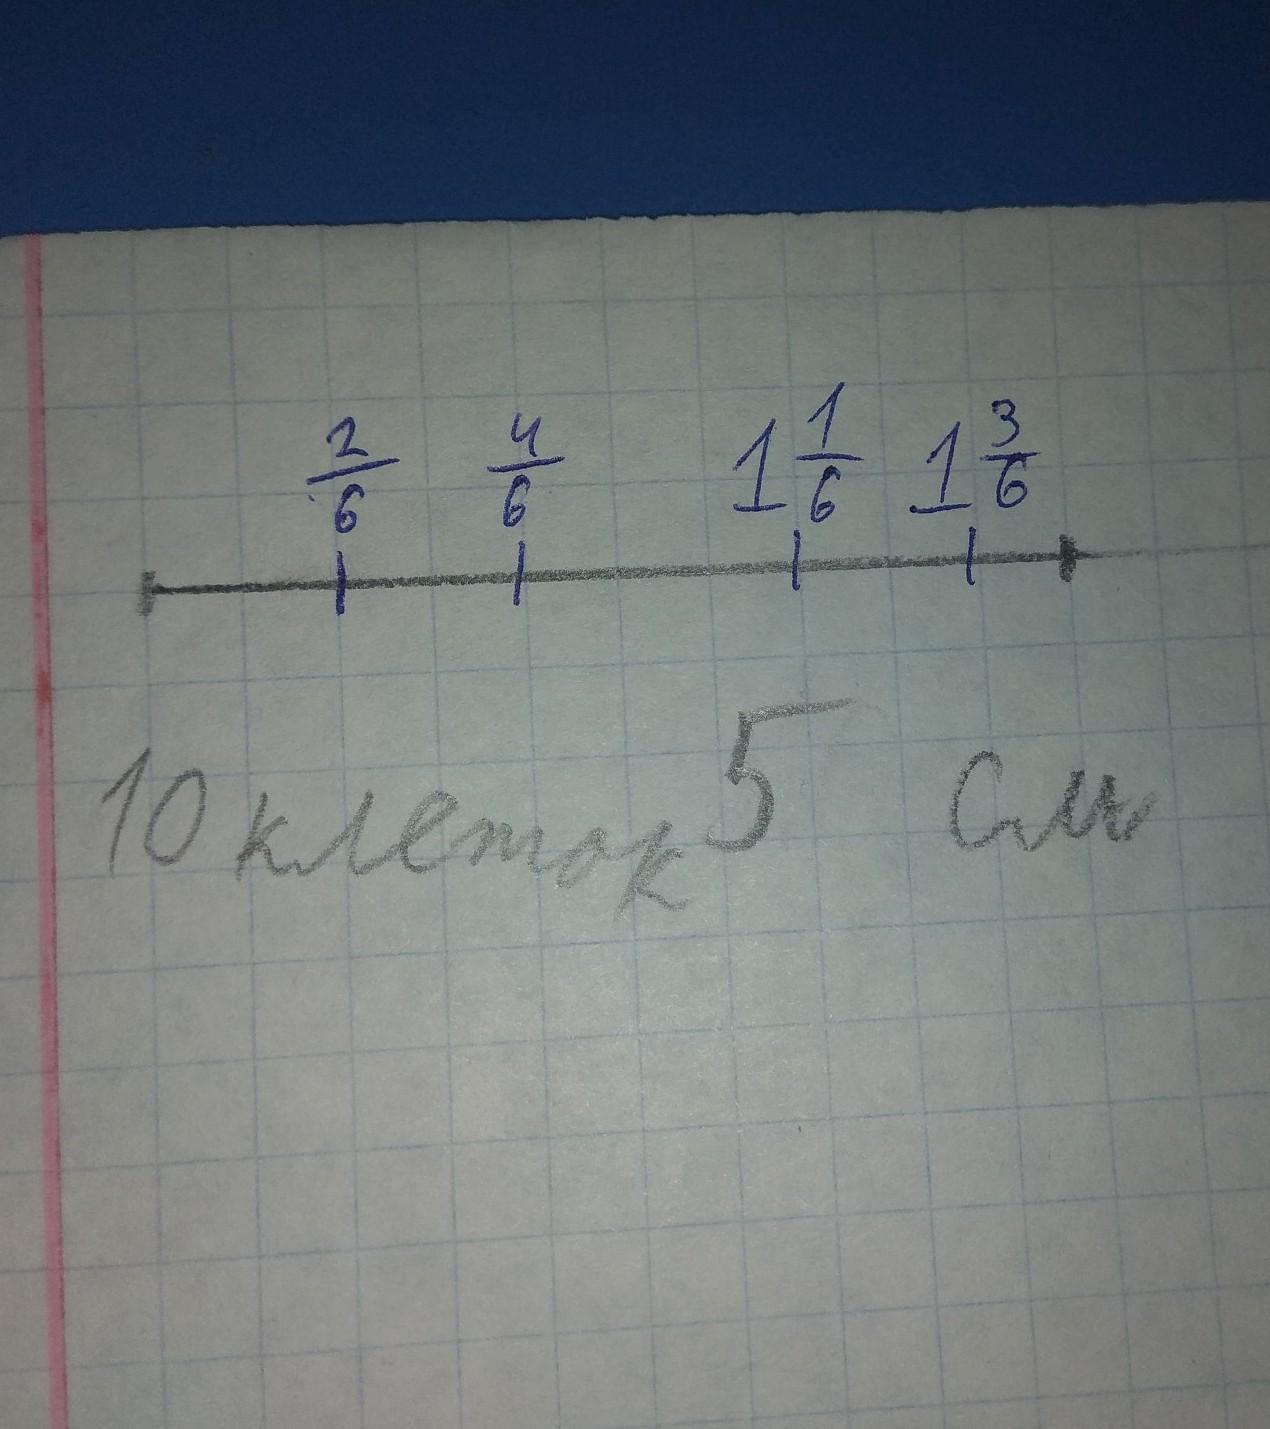 2/6 4/6 1 1/6 1 3/6
10 клеток 5 см